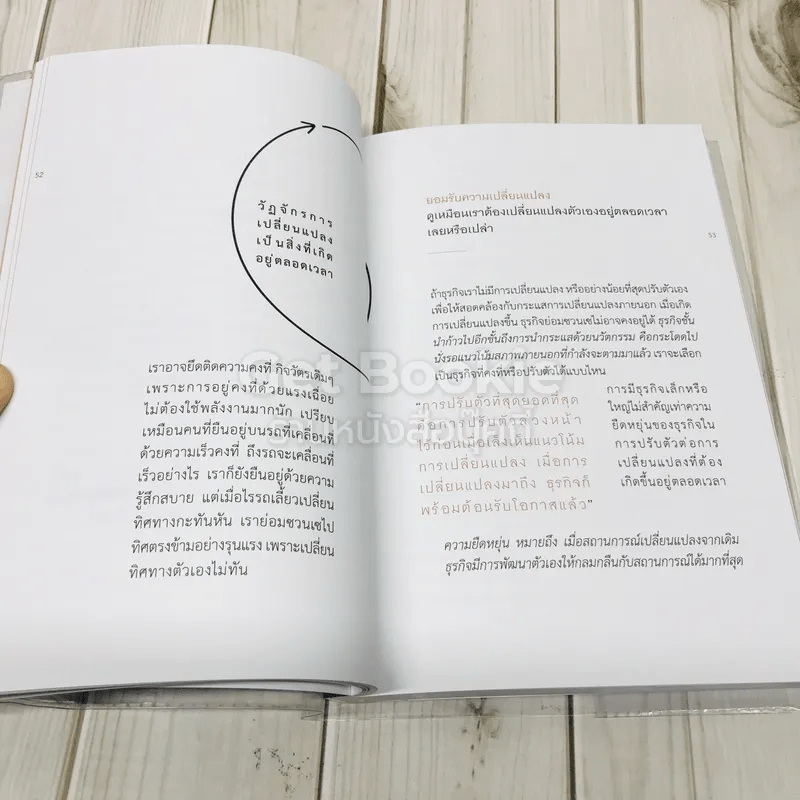 52
วัฏจักรการ
เปลี่ยนแปลง
เป็นสิ่งที่เกิด
อยู่ตลอดเวลา
เราอาจยึดติดความคงที่ กิจวัตรเดิมๆ
เพราะการอยู่คงที่ด้วยแรงเฉื่อย
ไม่ต้องใช้พลังงานมากนัก เปรียบ
เหมือนคนที่ยืนอยู่บนรถที่เคลื่อนที่
ด้วยความเร็วคงที่ ถึงรถจะเคลื่อนที่
เร็วอย่างไร เราก็ยังยืนอยู่ด้วยความ
รู้สึกสบาย แต่เมื่อไรรถเลี้ยวเปลี่ยน
ทิศทางกะทันหัน เราย่อมซวนเซไป
ทิศตรงข้ามอย่างรุนแรง เพราะเปลี่ยน
ทิศทางตัวเองไม่ทัน
ยอมรับความเปลี่ยนแปลง
ดูเหมือนเราต้องเปลี่ยนแปลงตัวเองอยู่ตลอดเวลา
เลยหรือเปล่า
53
ถ้าธุรกิจเราไม่มีการเปลี่ยนแปลง หรืออย่างน้อยที่สุดปรับตัวเอง
เพื่อให้สอดคล้องกับกระแสการเปลี่ยนแปลงภายนอก เมื่อเกิด
การเปลี่ยนแปลงขึ้น ธุรกิจย่อมซวนเซไม่อาจคงอยู่ได้ ธุรกิจชั้น
นำก้าวไปอีกขั้นถึงการนำกระแสด้วยนวัตกรรม คือกระโดดไป
นั่งรอแนวโน้มสภาพภายนอกที่กำลังจะตามมาแล้ว เราจะเลือก
เป็นธุรกิจที่คงที่หรือปรับตัวได้แบบไหน
"การปรับตัวที่สุดยอดที่สุด
คือการปรับตัวล่วงหน้า
ไว้ก่อนเมื่อเล็งเห็นแนวโน้ม
การเปลี่ยนแปลง เมื่อการ
เปลี่ยนแปลงมาถึง ธุรกิจก็
พร้อมต้อนรับโอกาสแล้ว"
การมีธุรกิจเล็กหรือ
ใหญ่ไม่สำคัญเท่าความ
ยืดหยุ่นของธุรกิจใน
การปรับตัวต่อการ
เปลี่ยนแปลงที่ต้อง
เกิดขึ้นอยู่ตลอดเวลา
ความยืดหยุ่น หมายถึง เมื่อสถานการณ์เปลี่ยนแปลงจากเดิม
ธุรกิจมีการพัฒนาตัวเองให้กลมกลืนกับสถานการณ์ได้มากที่สุด
Get Bookie